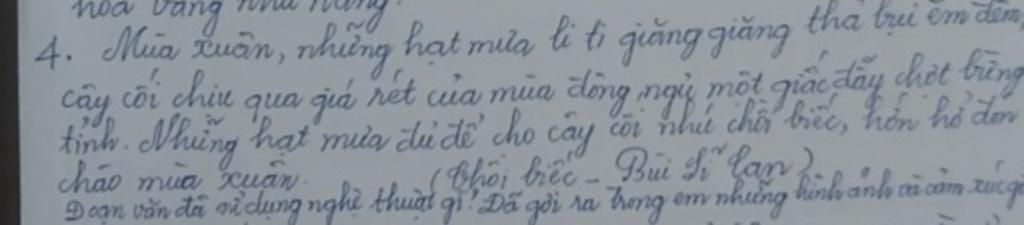 hoa vàng như nắng.
4. Mùa xuân, những hạt mưa li ti giăng giăng thả bụi êm đềm,
cây cối chịu qua giá rét của mùa đông, ngủ một giấc dậy chợt bừng
tỉnh. Những hạt mưa đủ để cho cây cối nhú chồi biếc, hớn hở đón
chào mùa xuân. (Chồi biếc - Bùi Sĩ Lan)
Đoạn văn đã sử dụng nghệ thuật gì? Đã gợi ra trong em những hình ảnh và cảm xúc gì